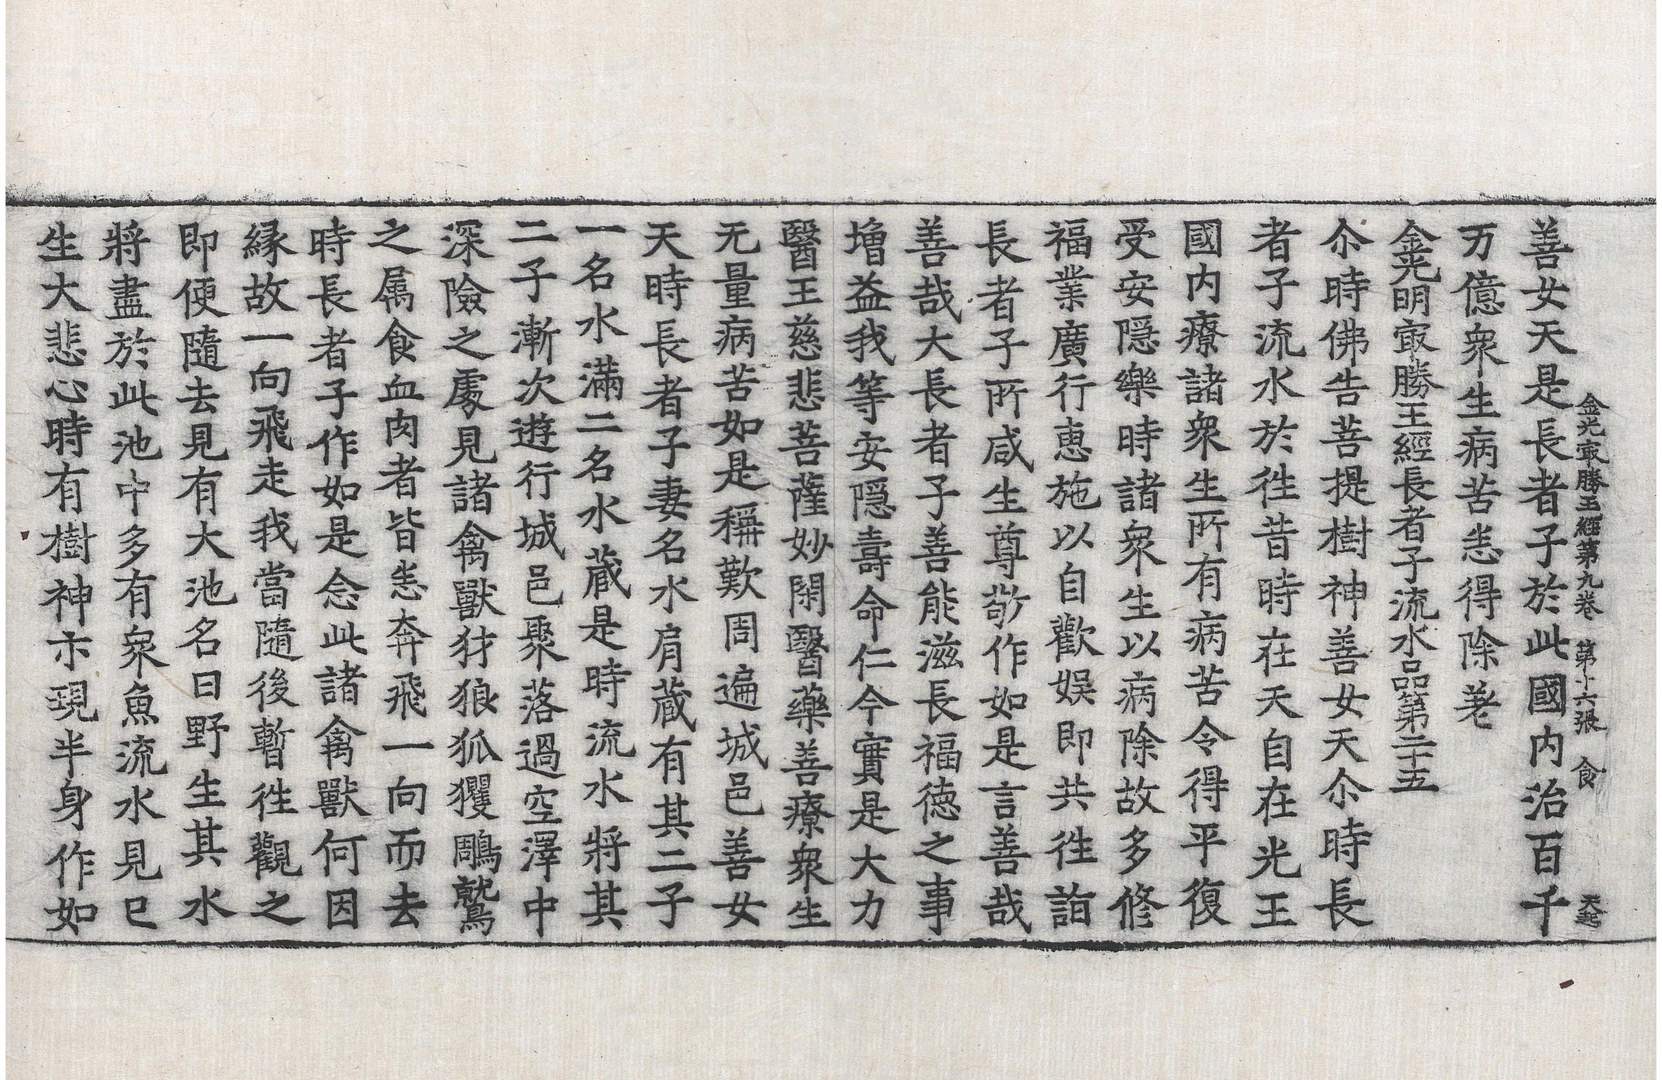 金光㝡勝王經第九卷 第十六張 食 天起
善女天是長者子於此國内治百千
万億衆生病苦悉得除荖
金光明㝡勝王經長者子流水品第二十五
尒時佛告菩提樹神善女天尒時長
者子流水於徃昔時在天自在光王
國内療諸衆生所有病苦令得平復
受安隠樂時諸衆生以病除故多修
福業廣行恵施以自歡娱即共徃詣
長者子所咸生尊敬作如是言善哉
善哉大長者子善能滋長福徳之事
増益我等安隠壽命仁今實是大力
醫王慈悲菩薩妙閑醫藥善療衆生
无量病苦如是稱歎周遍城邑善女
天時長者子妻名水肩蔵有其二子
一名水滿二名水蔵是時流水將其
二子漸次遊行城邑聚落過空澤中
深險之處見諸禽獸犲狼狐玃鵰鷲
之属食血肉者皆悉奔飛一向而去
時長者子作如是念此諸禽獸何因
縁故一向飛走我當隨後暫徃觀之
即便隨去見有大池名曰野生其水
將盡於此池中多有衆魚流水見已
生大悲心時有樹神示現半身作如